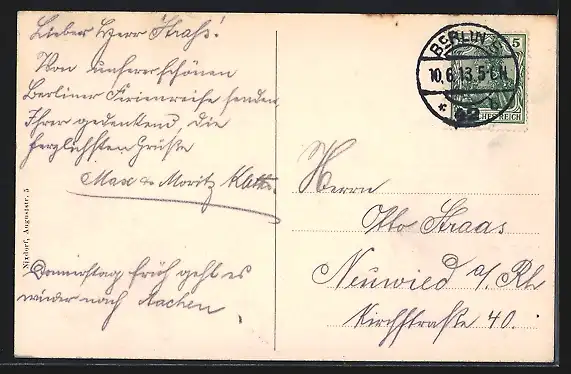 Lieber Herr Strass!
Von unserer schönen
Berliner Ferienreise senden,
Ihrer gedenkend, die
herzlichsten Grüße
Max u Moritz
Donnerstag früh geht es
wieder nach Aachen.
Rixdorf, Auguststr. 5
BERLIN S
10.6.13 5-6N
* 42 b
5
DEUTSCHES REICH
Herrn
Otto Straas
Neuwied a/Rh
Kirchstraße 40.